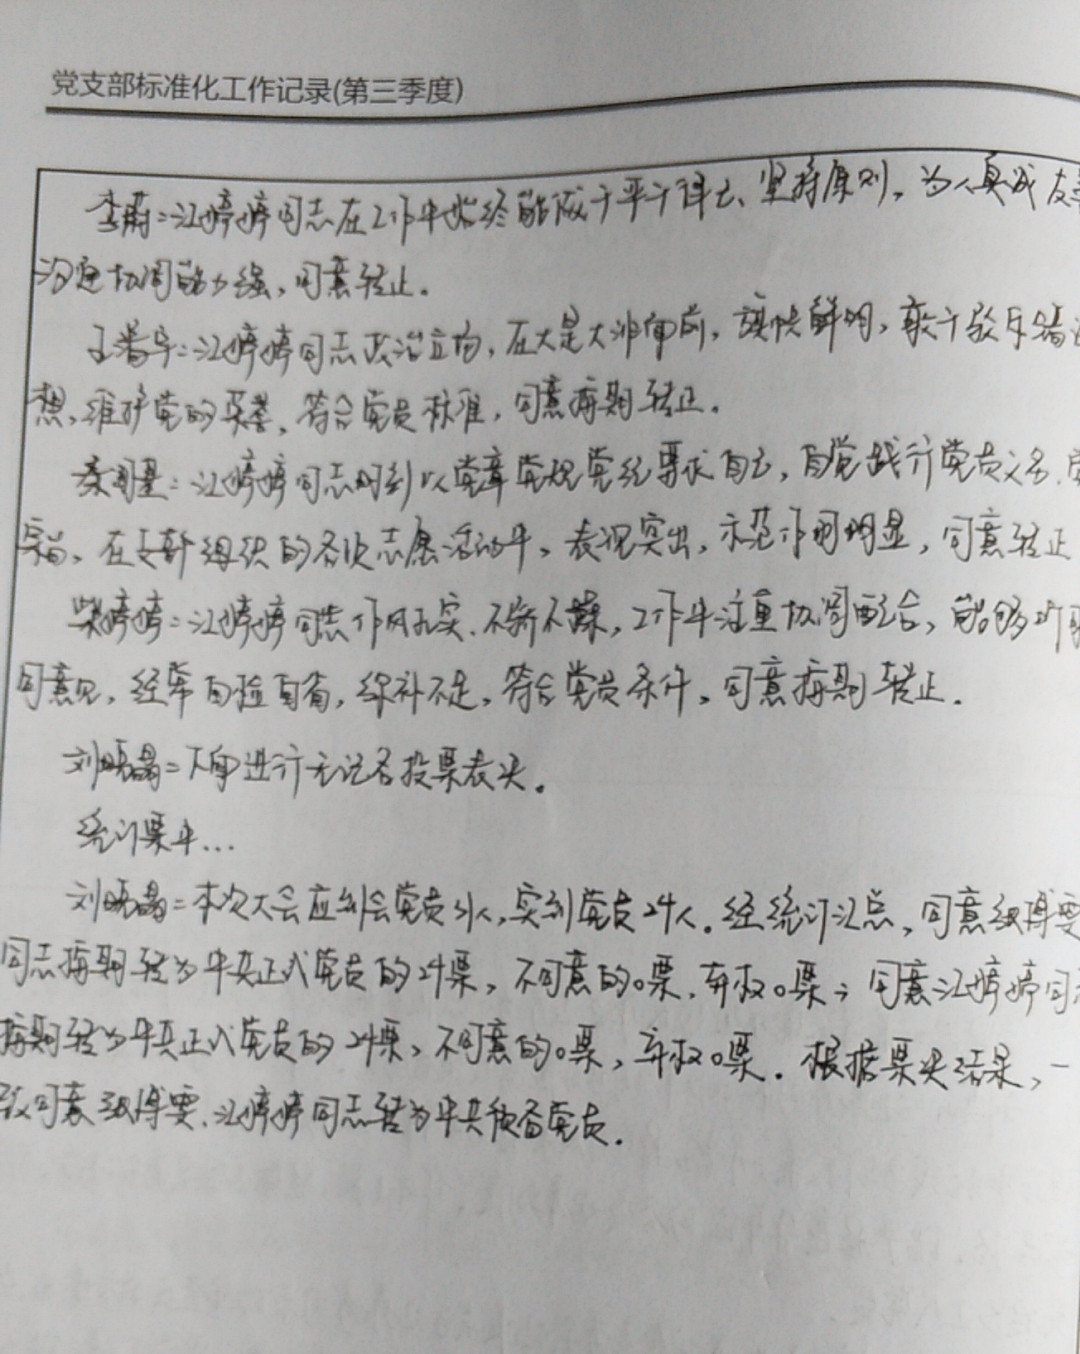 党支部标准化工作记录(第三季度)
李蔚：江婷婷同志在工作中始终能做干平干律己、坚持原则，为人真诚友善
沟通协调能力强，同意转正。
江婷婷同志政治立场，在大是大非面前，旗帜鲜明，敢于敢斥错误
想，维护党的荣誉，符合党员标准，同意按期转正。
江婷婷同志时刻以党章党规党纪要求自己，自觉践行党员义务，
在支部组织的各次志愿活动中，表现突出，示范作用明显，同意转正
柴婷婷：江婷婷同志作风扎实，不骄不躁，工作中注重协调配合，能够听取
同意见，经常自检自省，弥补不足，符合党员条件，同意按期转正。
刘晓晶：下面进行无记名投票表决。
统计票中...
刘晓晶：本次大会应到会党员31人，实到党员24人。经统计汇总，同意
同志按期转为中共正式党员的24票，不同意的0票，弃权0票；同意江婷婷同志
按期转为中共正式党员的24票，不同意的0票，弃权0票。根据票决结果，一
致同意、江婷婷同志转为中共预备党员。